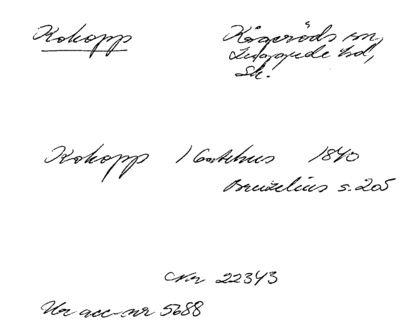 Kokopp Kågeröds sn,
Luggude hd,
Sk.
Kokopp 1 Gatehus 1840
Bruzelius s. 205
Nr 22343
Ur acc-nr 5688